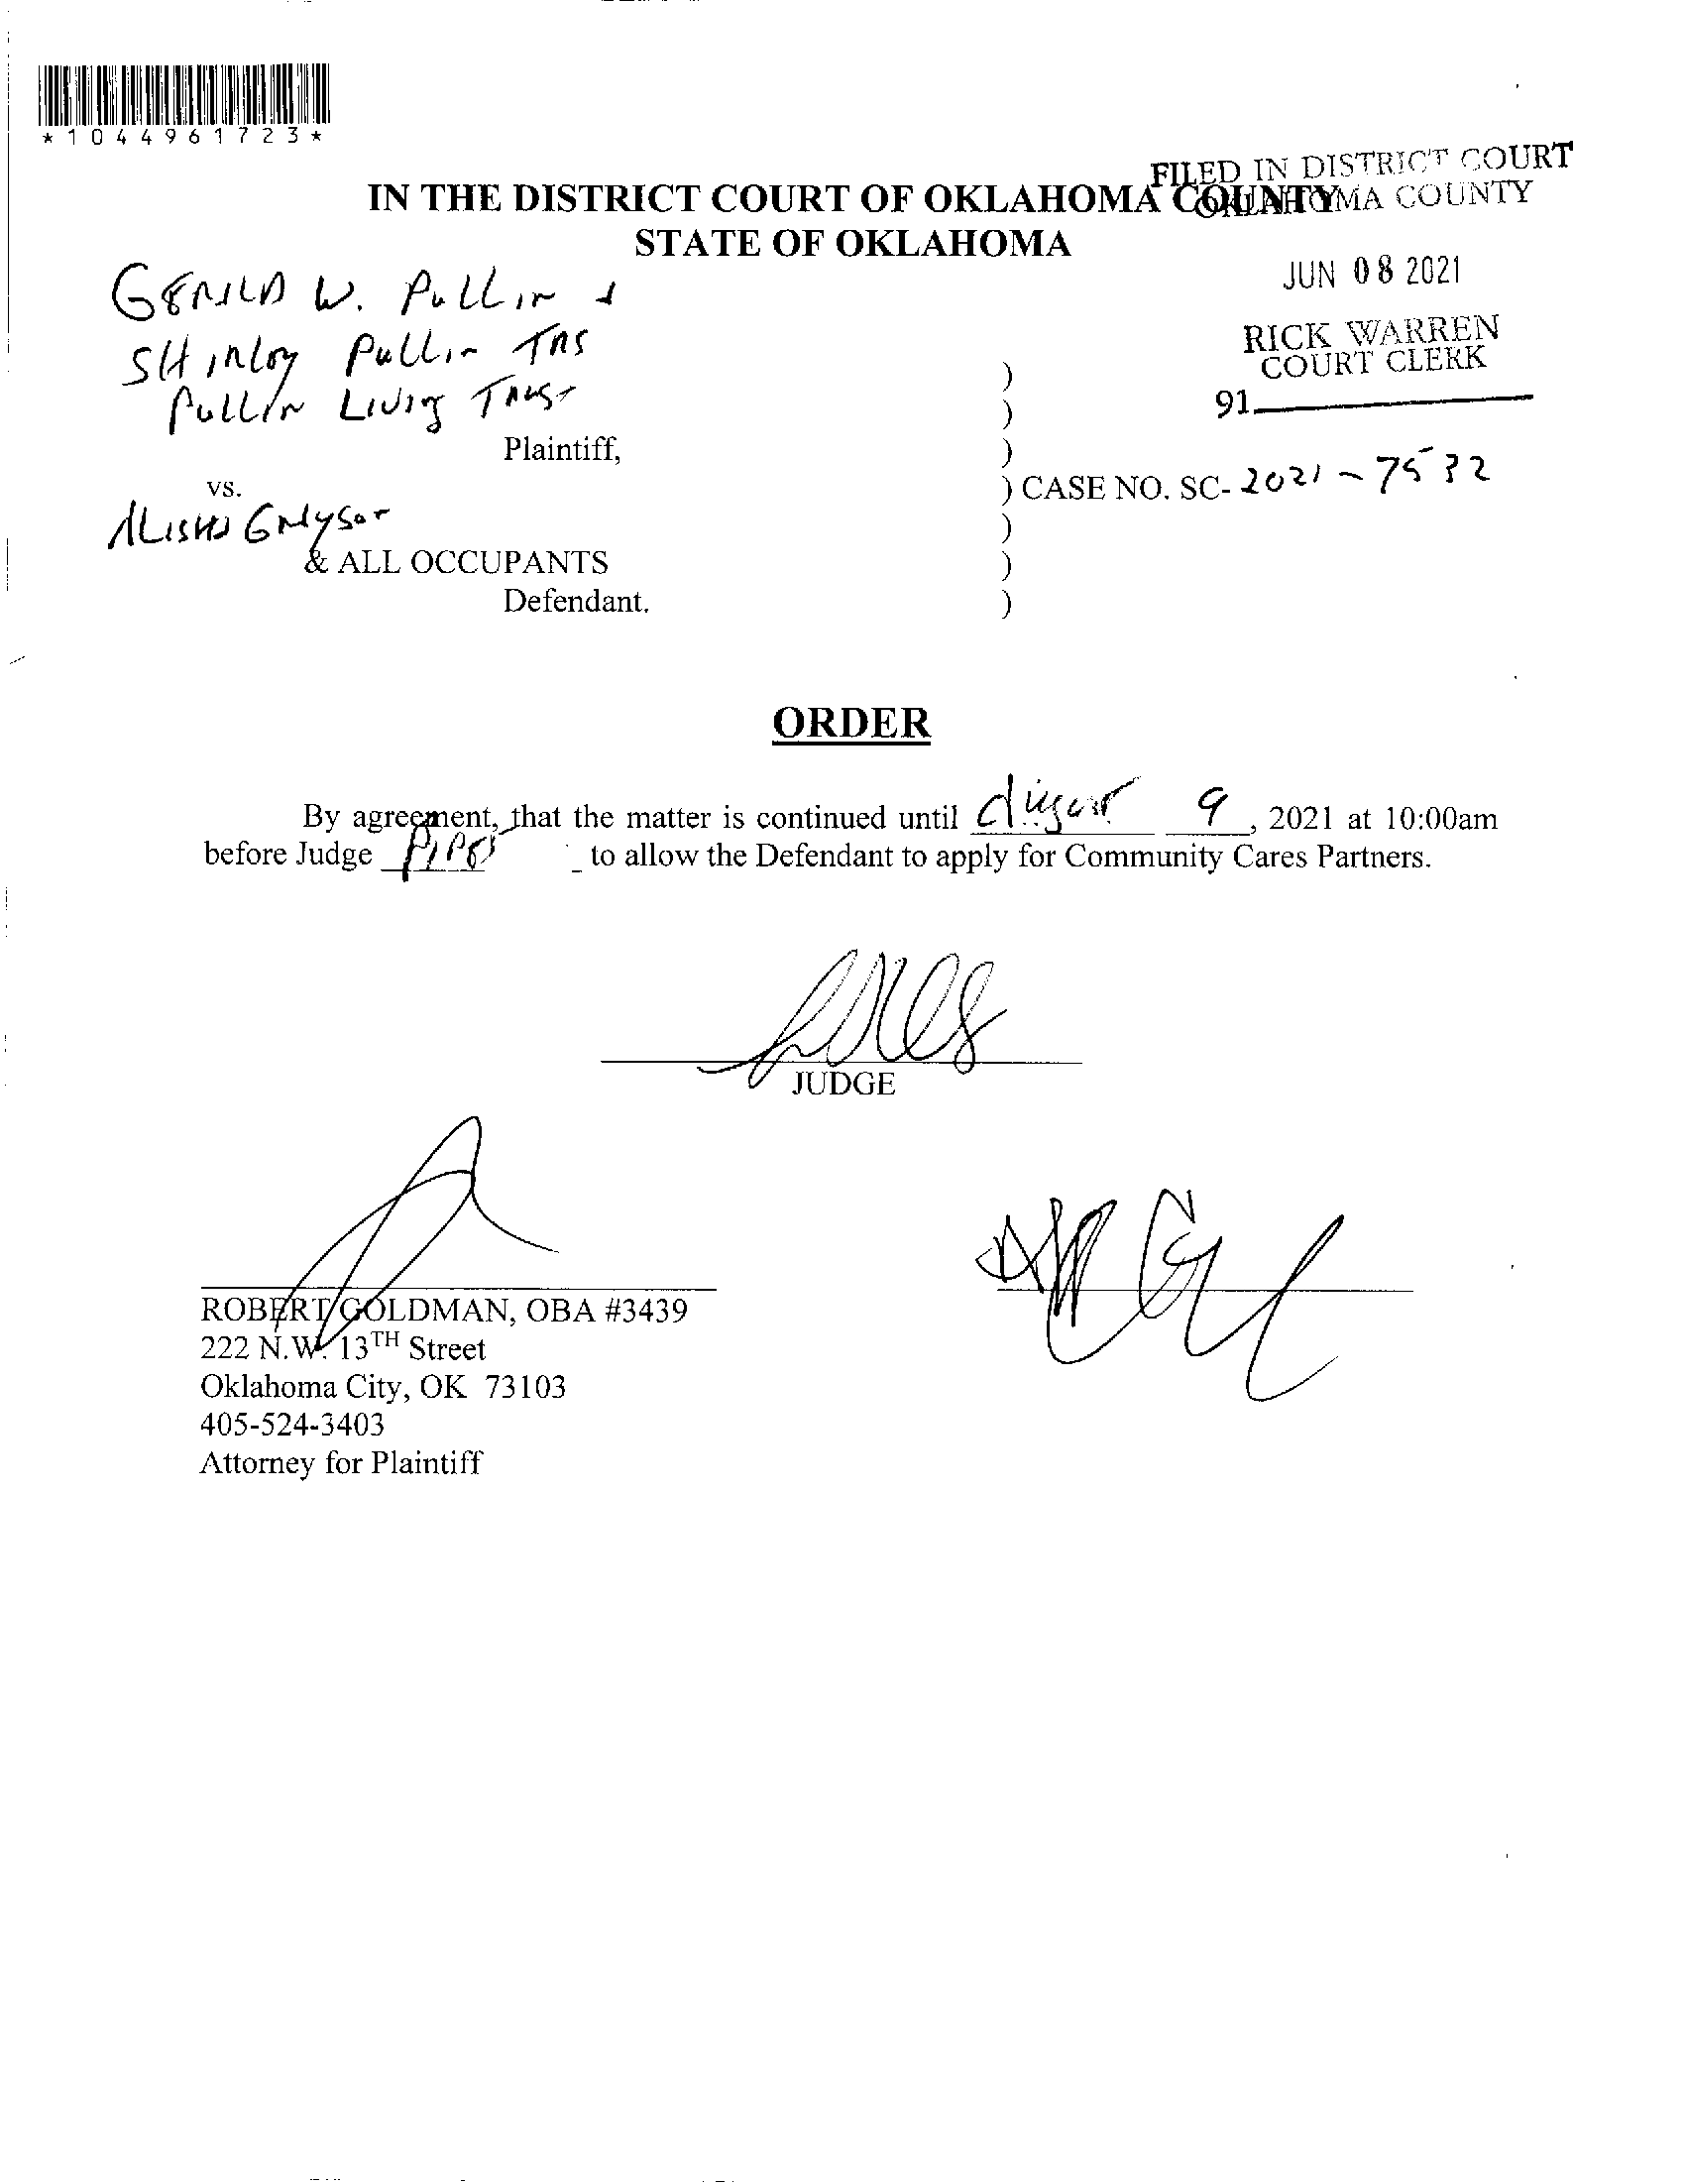 *1044961723*
FILED IN DISTRICT COURT
OKLAHOMA COUNTY
IN THE DISTRICT COURT OF OKLAHOMA COUNTY
STATE OF OKLAHOMA
JUN 08 2021
RICK WARREN
COURT CLERK
91
GERALD W. PULLIN &
SHIRLEY PULLIN TRS
PULLIN LIVING TRUST
)
)
Plaintiff, )
vs. ) CASE NO. SC-2021-7532
ALISHA GRAYSON )
& ALL OCCUPANTS )
Defendant. )
ORDER
By agreement, that the matter is continued until August 9, 2021 at 10:00am
before Judge PIPES to allow the Defendant to apply for Community Cares Partners.
JUDGE
ROBERT GOLDMAN, OBA #3439
222 N.W. 13TH Street
Oklahoma City, OK 73103
405-524-3403
Attorney for Plaintiff